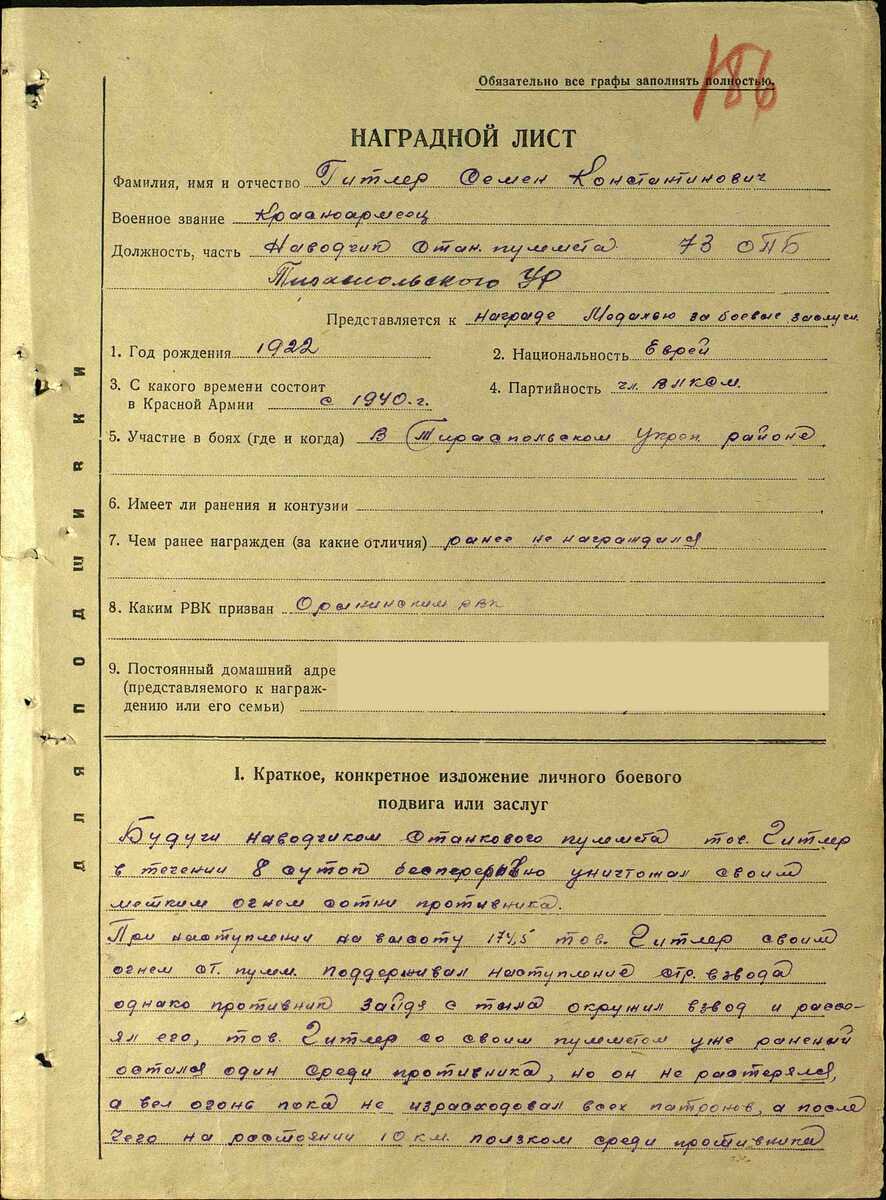 186
Обязательно все графы заполнять полностью.
НАГРАДНОЙ ЛИСТ
Фамилия, имя и отчество Гитлер Семен Константинович
Военное звание Красноармеец
Должность, часть Наводчик Стан. пулмета 73 ОПБ
Тираспольского УР
Представляется к награде Медалью за боевые заслуги.
1. Год рождения 1922
2. Национальность Еврей
3. С какого времени состоит
в Красной Армии с 1940.г.
4. Партийность чл. ВЛКСМ.
5. Участие в боях (где и когда) В Тираспольском Укреп районе
6. Имеет ли ранения и контузии
7. Чем ранее награжден (за какие отличия) ранее не награждался
8. Каким РВК призван Орынинским РВК
9. Постоянный домашний адре
(представляемого к награж-
дению или его семьи)
I. Краткое, конкретное изложение личного боевого
подвига или заслуг
Будучи наводчиком Станкового пулмета тов. Гитлер
в течении 8 суток бесперерывно уничтожал своим
метким огнем сотни противника.
При наступлении на высоту 174,5 тов. Гитлер своим
огнем ст. пулм. поддерживал наступление стр. взвода
однако противник зайдя с тыла окружил взвод и рассе-
ял его, тов. Гитлер со своим пулметом уже раненый
остался один среди противника, но он не растерялся,
а вел огонь пока не израсходовал всех патронов, а после
чего на растоянии 10 км. ползком среди противника
ДЛЯ ПОДШИВКИ